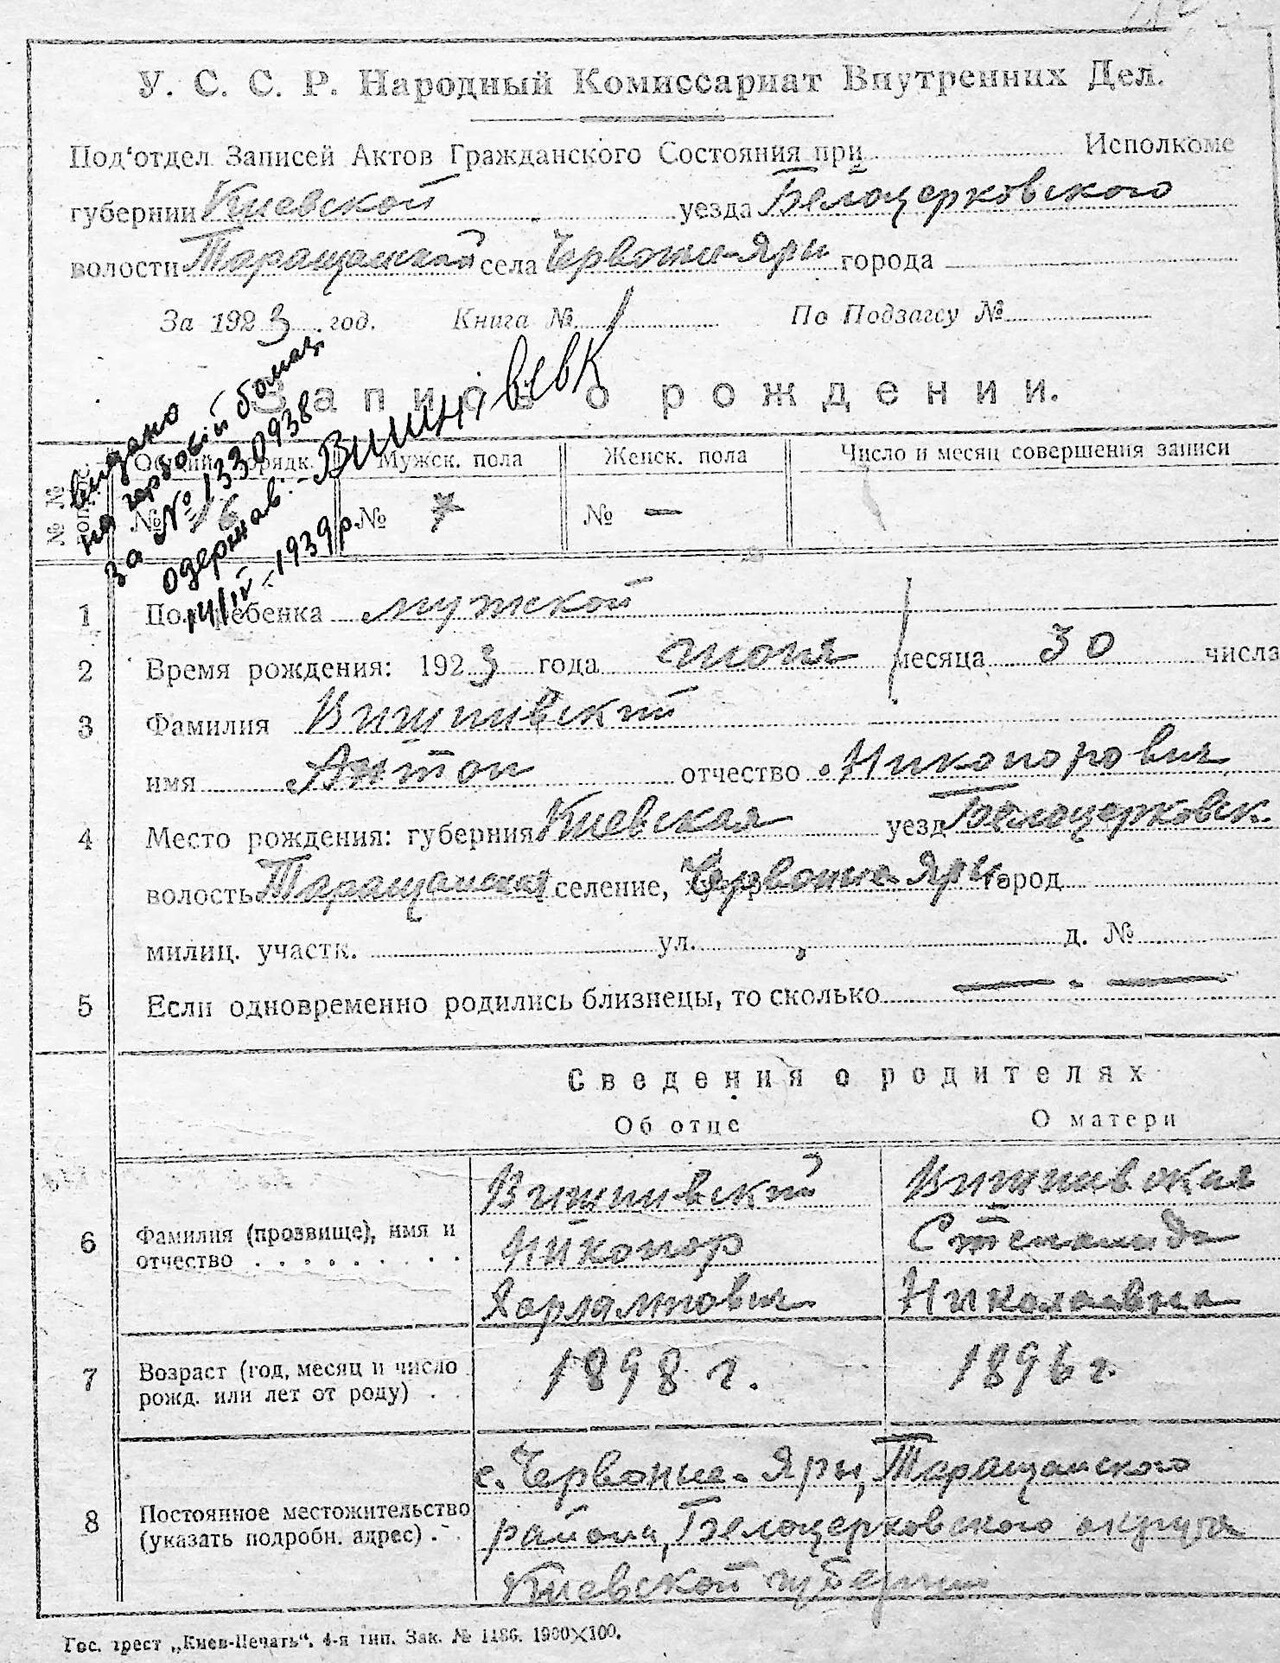 У. С. С. Р. Народный Комиссариат Внутренних Дел.
Под'отдел Записей Актов Гражданского Состояния при Исполкоме
губернии Киевской уезда Белоцерковского
волости Таращанской села Червоные-Яры города
За 1923 год. Книга № 1 По Подзагсу №
Запись о рождении.
видано
на гербовій бомаз.
за № 1330938
одержав:- Вишнівськ
14/IV-1939р.
№ № Общий порядк. Мужск. пола Женск. пола Число и месяц совершения записи
№ 16 № № —
1 Пол ребенка мужской
2 Время рождения: 1923 года июня месяца 30 числа
3 Фамилия Вишнивский
имя Антон отчество Никонорович
4 Место рождения: губерния Киевская уезд Белоцерковск.
волость Таращанская селение, Червоные Яры город
милиц. участк. ул. д. №
5 Если одновременно родились близнецы, то сколько — . —
Сведения о родителях
Об отце О матери
6 Фамилия (прозвище), имя и отчество . . . . . . . . .
Вишнивский
Никонор
Харлампович
Вишнивская
Степанида
Николаевна
7 Возраст (год, месяц и число рожд. или лет от роду) . . 1898 г. 1896 г.
8 Постоянное местожительство (указать подробн. адрес) . .
с. Червоные-Яры, Таращанского
района, Белоцерковского округа
Киевской губернии
Гос. трест „Киев-Печать“. 4-я тип. Зак. № 1186. 1900×100.